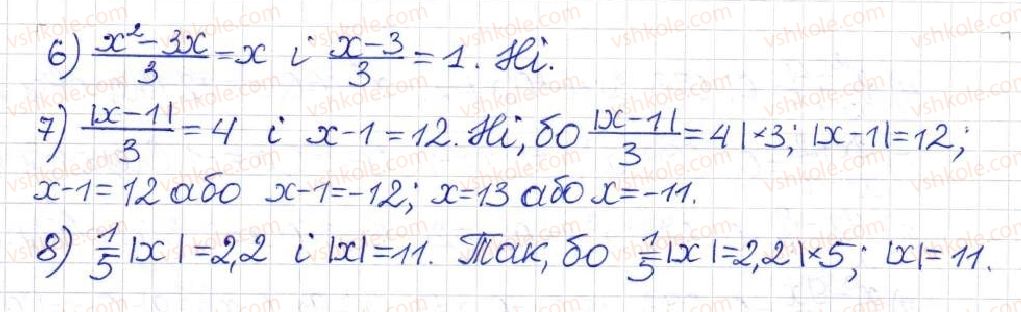 6) (x² - 3x)/3 = x і (x - 3)/3 = 1. Ні.
7) |x - 1|/3 = 4 і x - 1 = 12. Ні, бо |x - 1|/3 = 4 | ×3; |x - 1| = 12;
x - 1 = 12 або x - 1 = -12; x = 13 або x = -11.
8) 1/5 |x| = 2,2 і |x| = 11. Так, бо 1/5 |x| = 2,2 | ×5; |x| = 11.